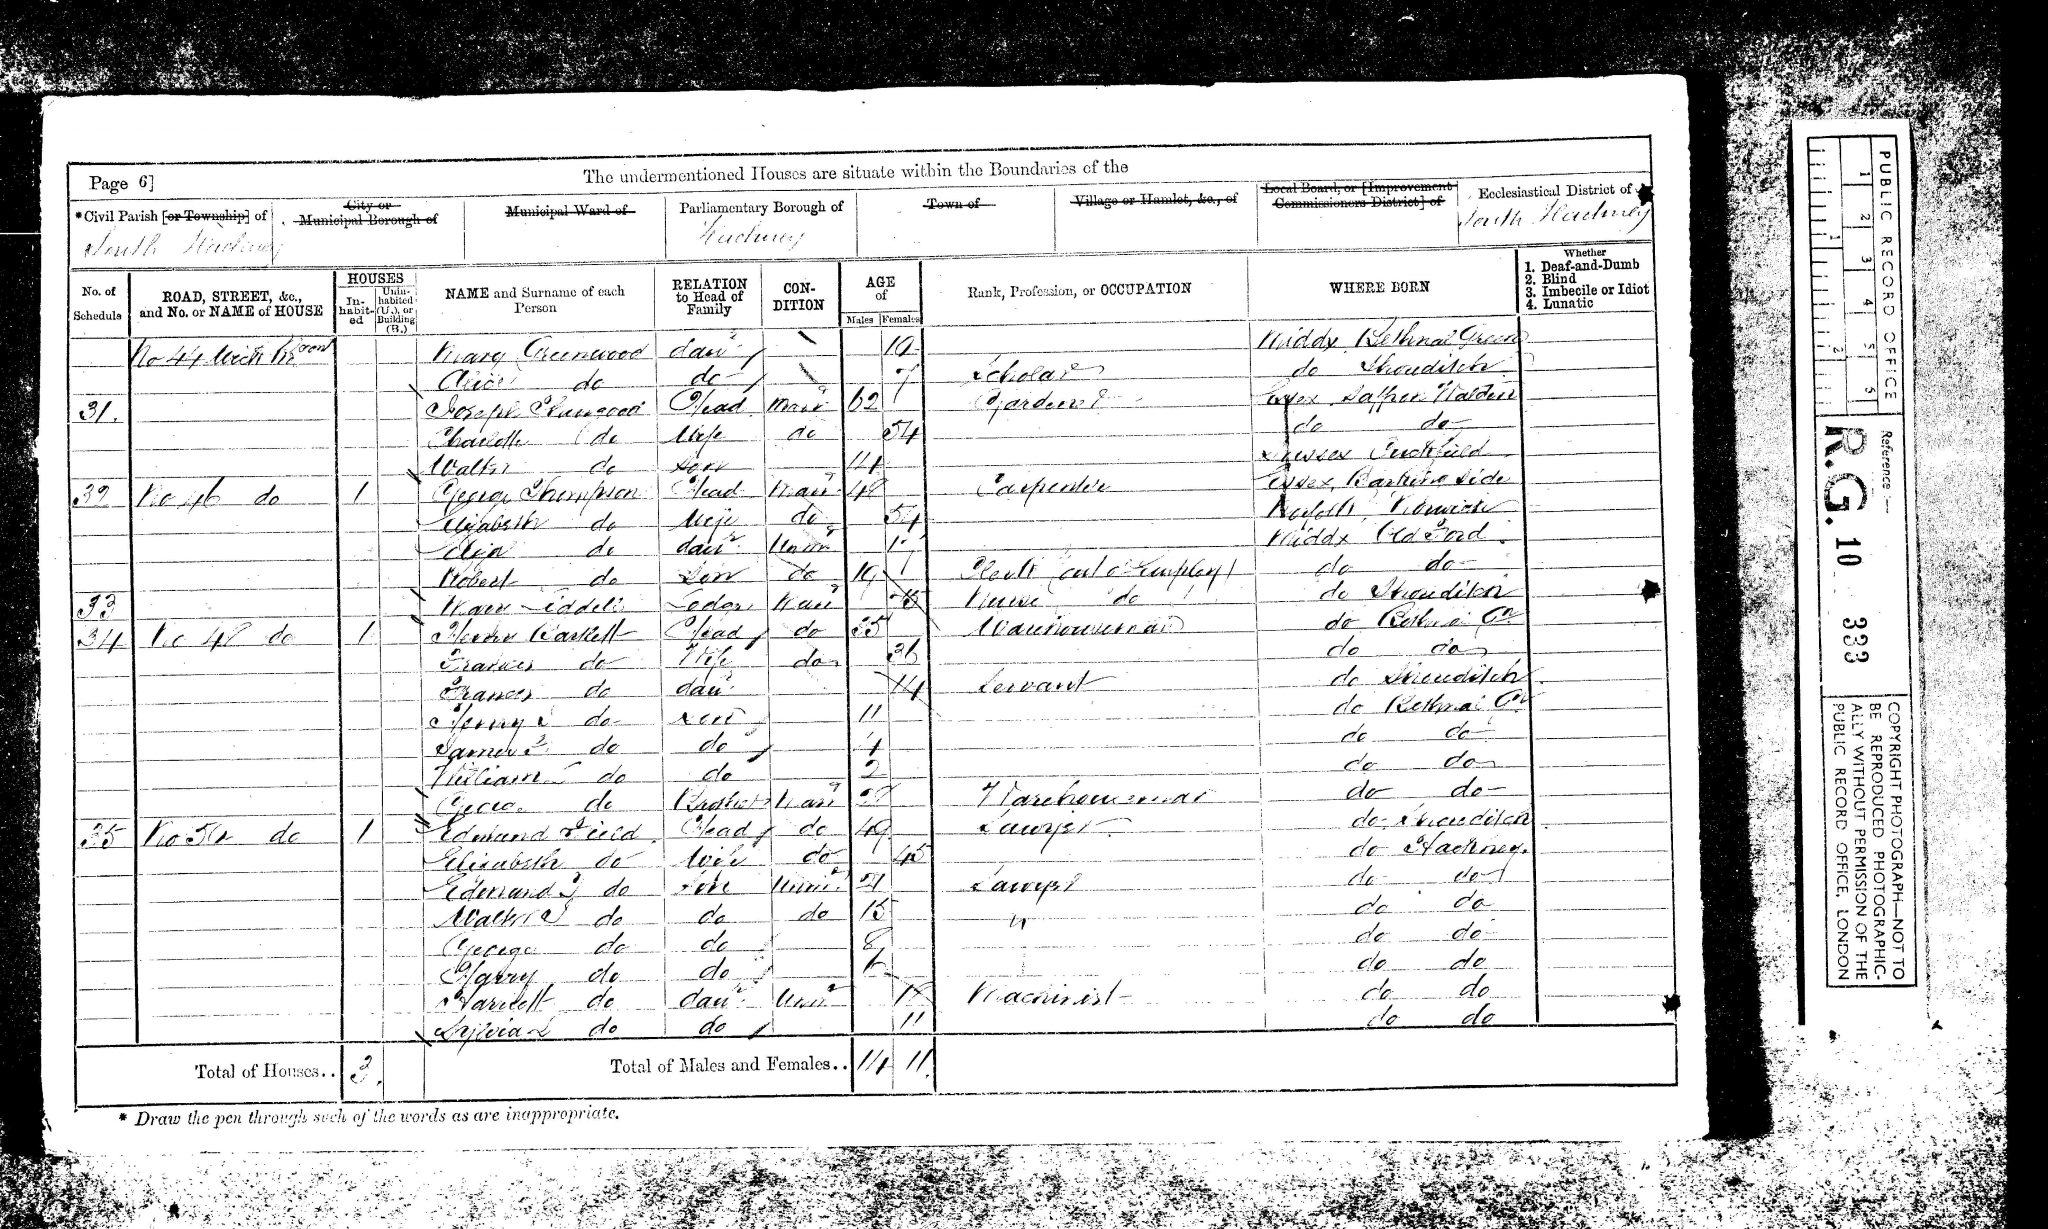 The undermentioned Houses are situate within the Boundaries of the
Page 6]
*Civil Parish [or Township] of
City or Municipal Borough of
Municipal Ward of
Parliamentary Borough of
Town of
Village or Hamlet, &c., of
Local Board, or [Improvement Commissioners District] of
Ecclesiastical District of
South Hackney
Hackney
South Hackney
No. of Schedule
ROAD, STREET, &c., and No. or NAME of HOUSE
HOUSES
In-habit-ed
Unin-habited (U.), or Building (B.)
NAME and Surname of each Person
RELATION to Head of Family
CON-DITION
AGE of
Males
Females
Rank, Profession, or OCCUPATION
WHERE BORN
Whether
1. Deaf-and-Dumb
2. Blind
3. Imbecile or Idiot
4. Lunatic
No 44 Mary Greenwood daur Middx Bethnal Green
Alice do do 7 Scholar do Shoreditch
31. Joseph Head Marr 62 Gardener Essex Saffron Walden
Charlotte do Wife do 54 do do
Walter do Son 14 Sussex
32 No 46 do 1 George Thompson Head Marr 48 Carpenter Essex, Barking side
Elizabeth do Wife do 54 Norfolk, Norwich
Eliza do daur Unmr 17 Middx Old Ford
Robert do Son do 19 Clerk (out of Employ) do do
33 Mary Liddell Lodger 75 Nurse do do Shoreditch
34 No 48 do 1 Henry Head do 35 Warehouseman do Bethnal Gn
Frances do Wife do 36 do do
Frances do daur 14 Servant do Shoreditch
Henry do son 11 do Bethnal Gn
James do do 4 do do
William do do 2 do do
George do Brother Marr Warehouseman do do
35 do 1 Edmund Field Head do 49 Sawyer do Shoreditch
Elizabeth do Wife do 45 do Hackney
Edmund do Son Unmr 21 Sawyer do do
Walter do do do 15 " do do
George do do 8 do do
Harry do do 6 do do
Harriett do daur Unmr 18 Machinist do do
Sylvia do do 11 do do
Total of Houses.. 3. Total of Males and Females.. 14 11.
* Draw the pen through such of the words as are inappropriate.
PUBLIC RECORD OFFICE
1 2 3 4 5 6
1 2
Reference :—
R.G. 10 333
COPYRIGHT PHOTOGRAPH—NOT TO
BE REPRODUCED PHOTOGRAPHIC-
ALLY WITHOUT PERMISSION OF THE
PUBLIC RECORD OFFICE, LONDON